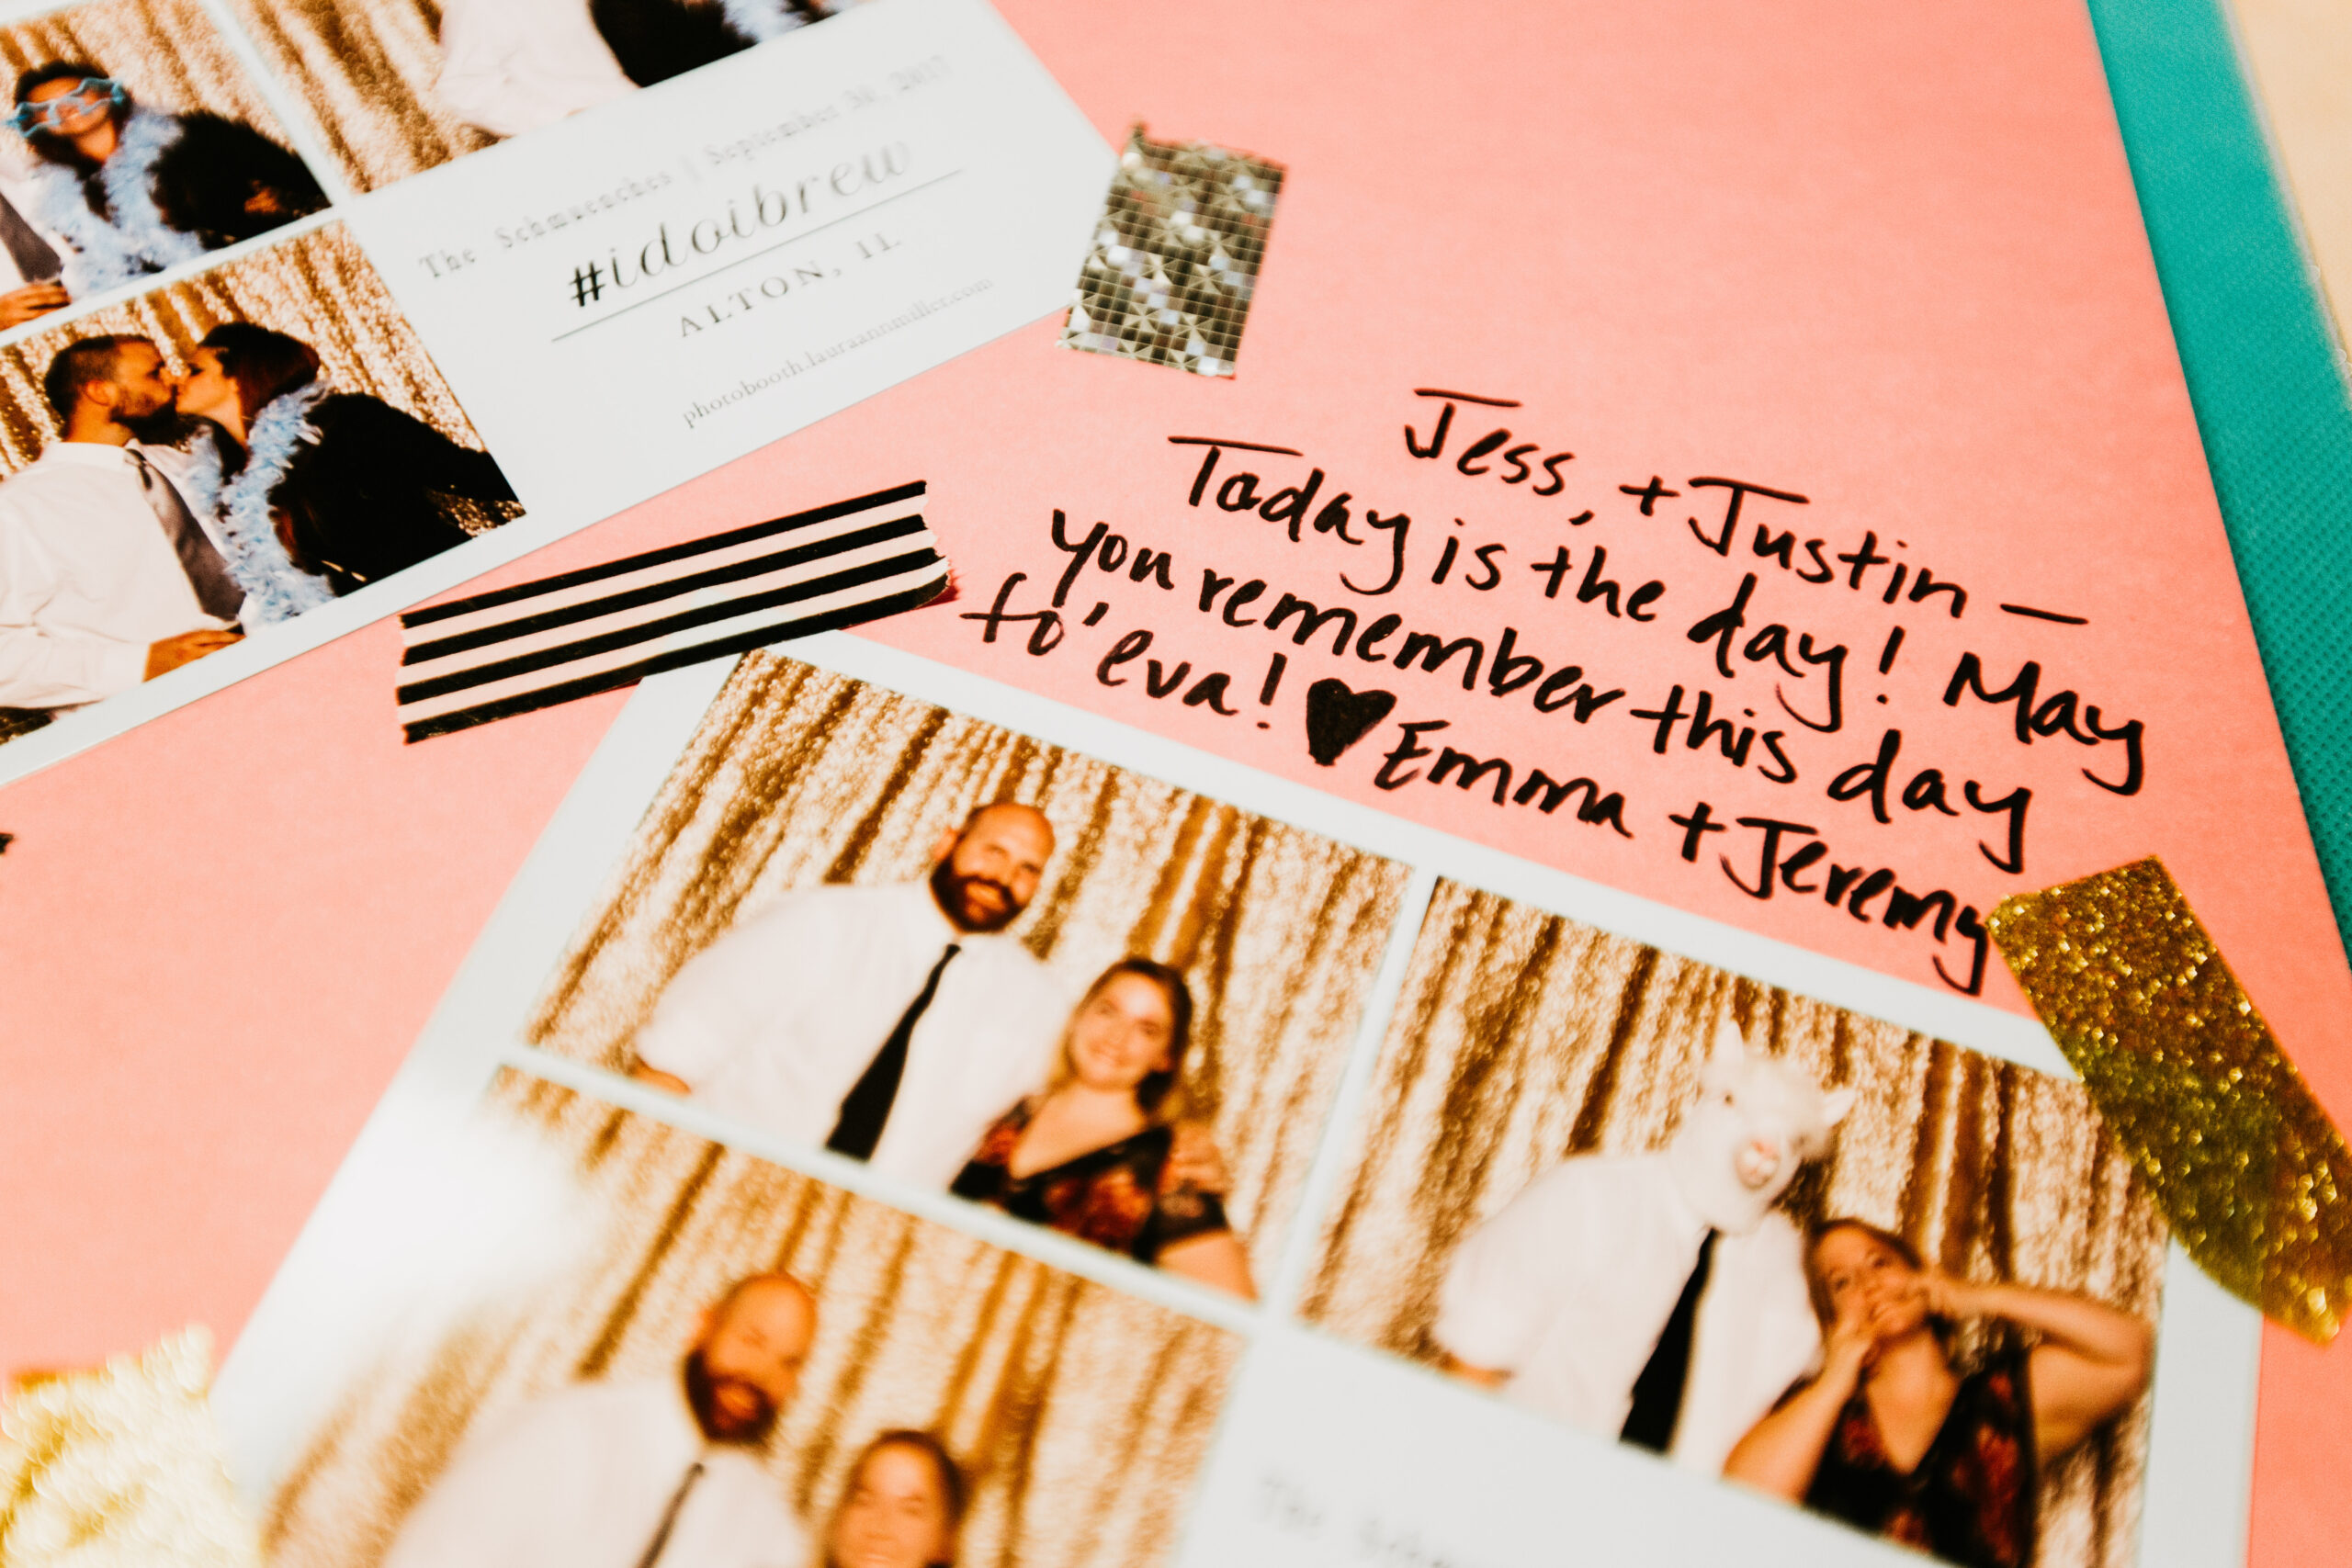 The Schmuenches | September 30, 2017
#idoibrew
ALTON, IL
photobooth.lauraannmiller.com
Jess, + Justin —
Today is the day! May
you remember this day
fo' eva! ♥ Emma + Jeremy
The